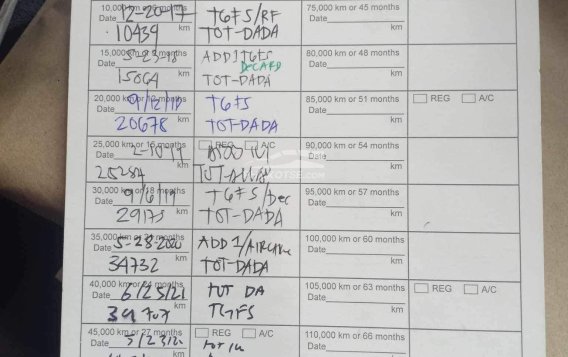 10,000 km or 6 months
Date 12-20-17
10439 km
TGFS/RF
TOT-DADA
75,000 km or 45 months
Date
km
15,000 km or 9 months
Date 5-23-18
15064 km
ADD1TGFS
DECARB
TOT-DADA
80,000 km or 48 months
Date
km
20,000 km or 12 months
Date 9/12/18
20678 km
TGFS
TOT-DADA
85,000 km or 51 months
Date
km
REG A/C
25,000 km or 15 months
Date 2-10-19
km
REG A/C
90,000 km or 54 months
Date
km
OTSE.COM
30,000 km or 18 months
Date 9/6/19
29173 km
TGFS/Dec
TOT-DADA
95,000 km or 57 months
Date
km
35,000 km or 21 months
Date 5-28-2020
34732 km
ADD1/AIRCARE
TOT-DADA
100,000 km or 60 months
Date
km
40,000 km or 24 months
Date 6/25/21
39707 km
TOT DA
TGFS
105,000 km or 63 months
Date
km
REG A/C
45,000 km or 27 months
Date
km
REG A/C
110,000 km or 66 months